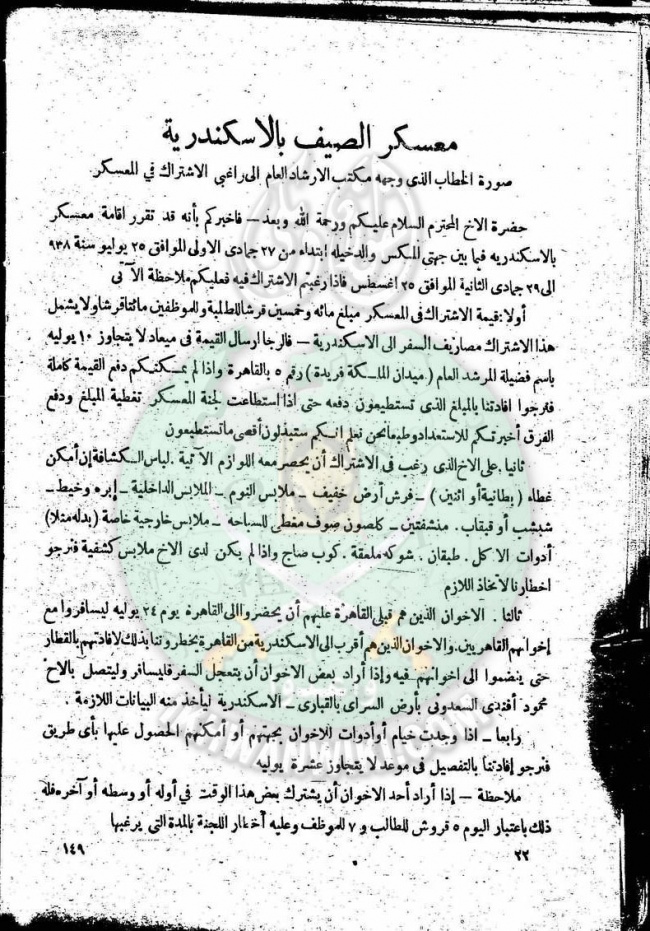 معسكر الصيف بالاسكندرية
صورة الخطاب الذى وجهه مكتب الارشاد العام الى راغبي الاشتراك في المعسكر
حضرة الاخ المحترم السلام عليكم ورحمة الله وبعد — فاخبركم بأنه قد تقرر اقامة معسكر
بالاسكندريه فيما بين جهتى المكس والدخيله إبتداء من ٢٧ جمادى الاولى الموافق ٢٥ يوليو سنة ٩٣٨
الى ٢٩ جمادى الثانية الموافق ٢٥ اغسطس فاذا رغبتم الاشتراك فيه فعليكم ملاحظة الآتى
أولا : قيمة الاشتراك فى المعسكر مبلغ مائه وخمسين قرشا للطلبة وللموظفين مائتا قرشا ولا يشمل
هذا الاشتراك مصاريف السفر الى الاسكندرية — فالرجا ارسال القيمة فى ميعاد لا يتجاوز ١٠ يوليه
باسم فضيلة المرشد العام ( ميدان الملكة فريدة ) رقم ٥ بالقاهرة واذا لم يمكنكم دفع القيمة كاملة
فنرجوا افادتنا بالمبلغ الذى تستطيعون دفعه حتى اذا استطاعت لجنة المعسكر تغطية المبلغ ودفع
الفرق أخبرتكم للاستعداد وطبعا نحن نعلم انكم ستبذلون أقصى ما تستطيعون
ثانيا . على الاخ الذى رغب فى الاشتراك أن يحضر معه اللوازم الآتية . لباس الكشافة إن أمكن
غطاء ( بطانية أو اثنين ) — فرش أرض خفيف — ملابس النوم — الملابس الداخلية — إبره وخيط —
شبشب أو قبقاب . منشفتين — كلصون صوف مغطى للسباحه — ملابس خارجية خاصة ( بدله مثلا )
أدوات الاكل . طبقان . شوكه ملعقة . كوب صاج واذا لم يكن لدى الاخ ملابس كشفية فنرجو
اخطارنا لاتخاذ اللازم
ثالثا . الاخوان الذين هم قبلى القاهرة عليهم أن يحضروا الى القاهره يوم ٢٤ يوليه ليسافروا مع
إخوانهم القاهريين . والاخوان الذين هم أقرب الى الاسكندرية من القاهرة يخطروننا بذلك لافادتهم بالقطار
حتى ينضموا الى اخوانهم فيه وإذا أراد بعض الاخوان أن يتعجل السفر فليسافر وليتصل بالاخ
محمود أفندى السعدونى بأرض السراى بالقبارى — الاسكندرية ليأخذ منه البيانات اللازمة .
رابعا — اذا وجدت خيام أو أدوات للاخوان بجهتهم أو امكنهم الحصول عليها بأى طريق
فنرجو إفادتنا بالتفصيل فى موعد لا يتجاوز عشرة يوليه
ملاحظة — إذا أراد أحد الاخوان أن يشترك بعض هذا الوقت في أوله أو وسطه أو آخره فله
ذلك باعتبار اليوم ٥ قروش للطالب و ٧ للموظف وعليه أخطار اللجنة بالمدة التى يرغبها
٢٢
١٤٩